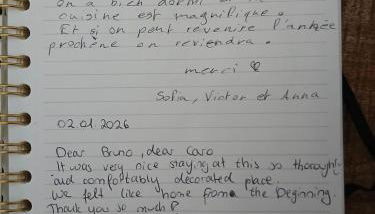 On a bien dormi et la
cuisine est magnifique.
Et si on peut revenire l'année
prochène on reviendra.
merci
Sofia, Victor et Anna
02.01.2026
Dear Bruno, dear Caro
It was very nice staying at this so thought-
and comfortably decorated place.
We felt like home from the beginning.
Thank you so much!